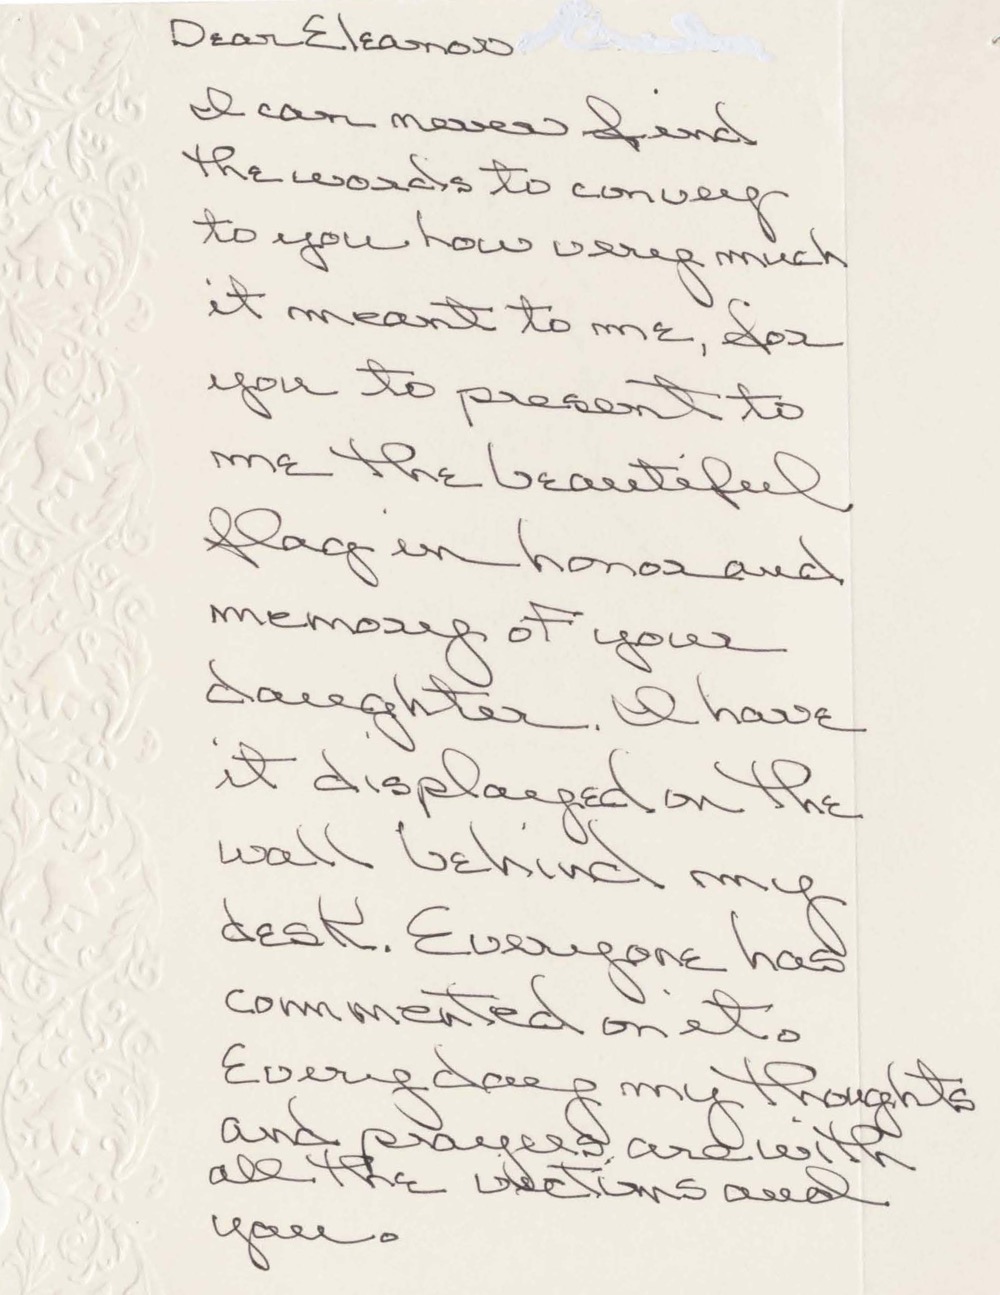 Dear Eleanor
I can never find
the words to convey
to you how very much
it meant to me, for
you to present to
me the beautiful
flag in honor and
memory of your
daughter. I have
it displayed on the
wall behind my
desk. Everyone has
commented on it.
Everyday my thoughts
and prayers are with
all the victims and
you.